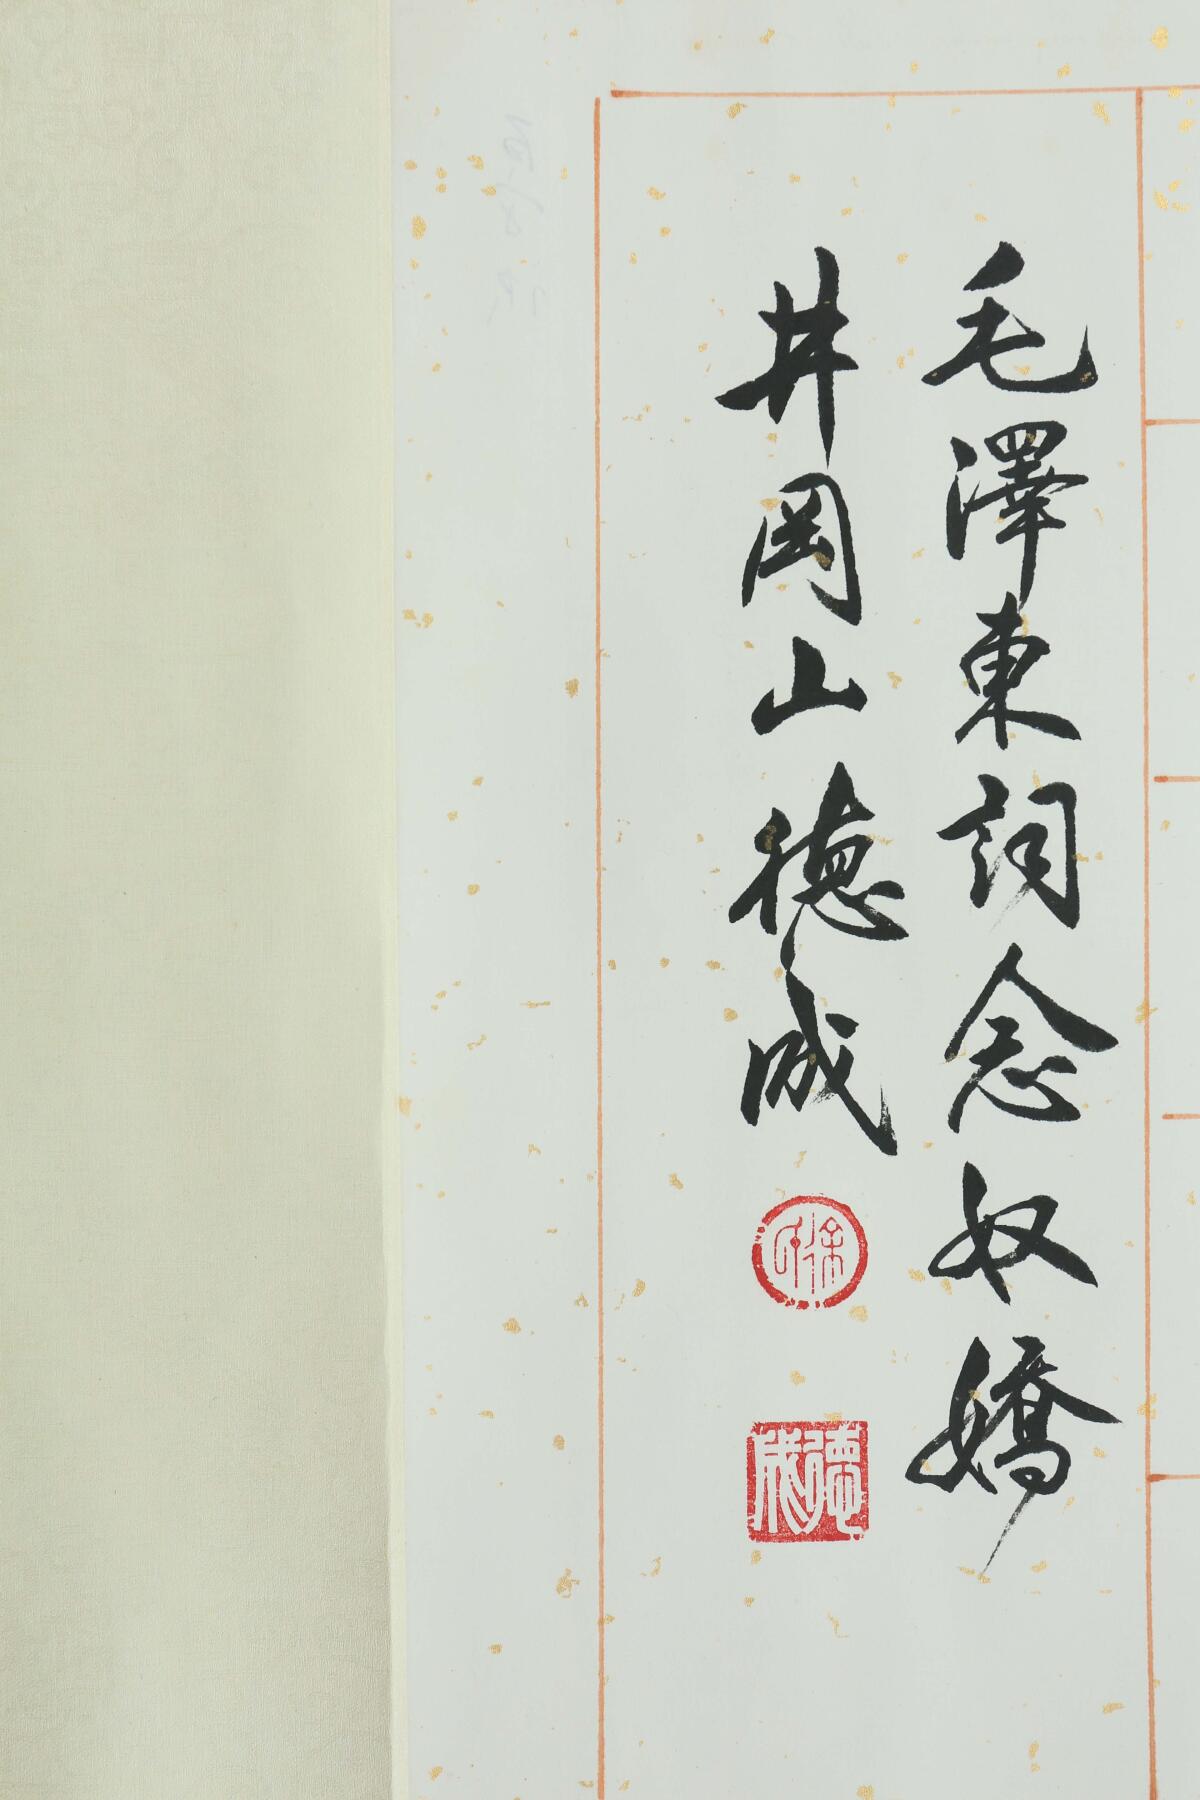 毛澤東詞念奴嬌
井岡山德成
德成